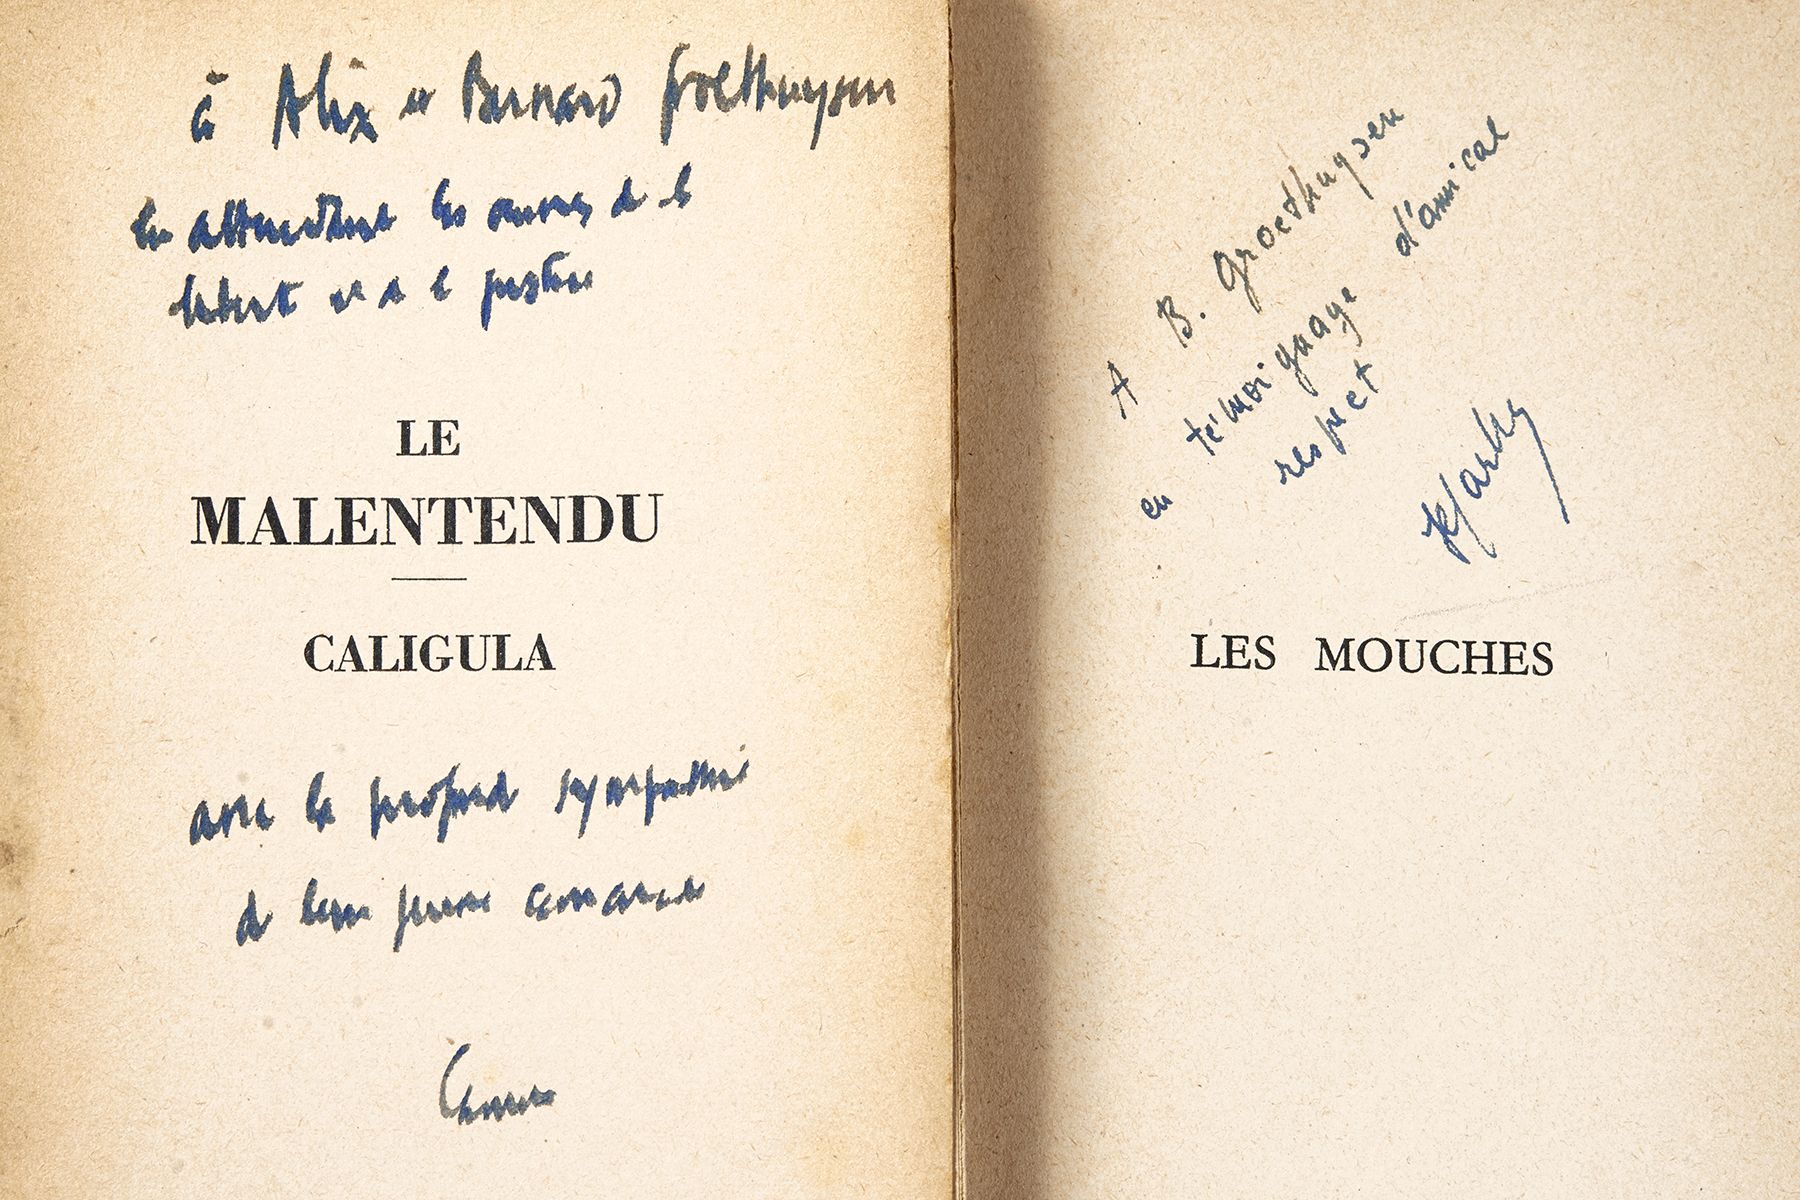 à Alix et Bernard Groethuysen
en attendant les œuvres de la
liberté et de la justice
LE
MALENTENDU
CALIGULA
avec la profonde sympathie
de leur jeune camarade
Camus
A B. Groethuysen
en témoignage d'amical
respect
JPSartre
LES MOUCHES